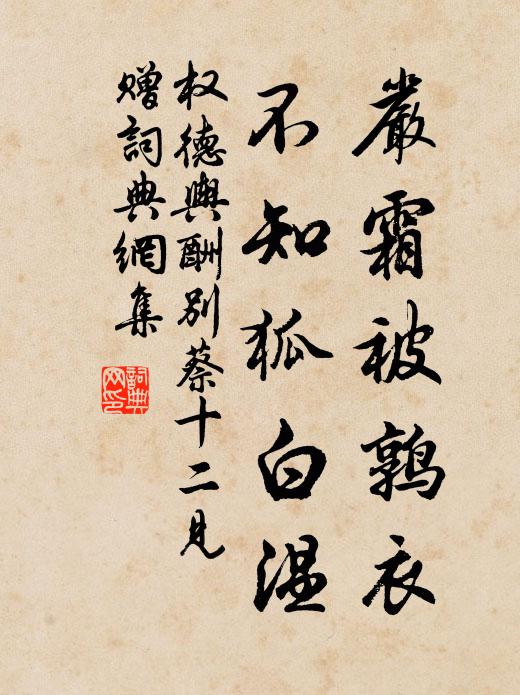 嚴霜被鶉衣
不知狐白溫
权德輿酬別蔡十二見
贈詞典網集
詞典网印